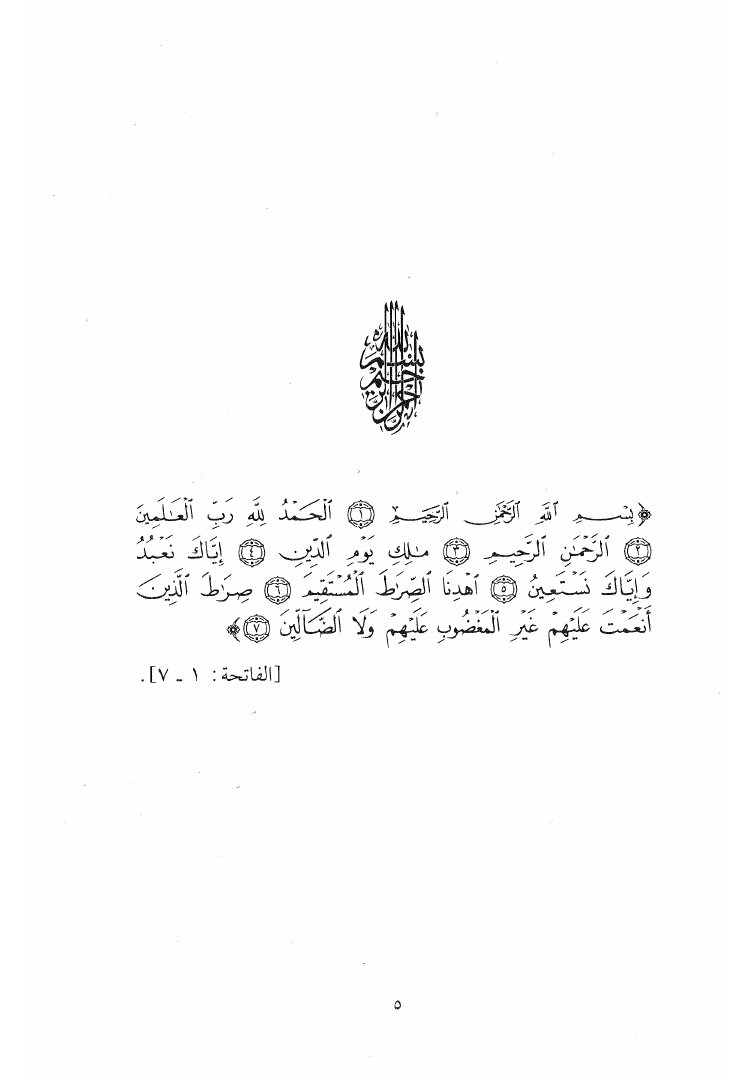 بسم الله الرحمن الرحيم
﴿بِسْمِ ٱللَّهِ ٱلرَّحْمَٰنِ ٱلرَّحِيمِ ١ ٱلْحَمْدُ لِلَّهِ رَبِّ ٱلْعَٰلَمِينَ
٢ ٱلرَّحْمَٰنِ ٱلرَّحِيمِ ٣ مَٰلِكِ يَوْمِ ٱلدِّينِ ٤ إِيَّاكَ نَعْبُدُ
وَإِيَّاكَ نَسْتَعِينُ ٥ ٱهْدِنَا ٱلصِّرَٰطَ ٱلْمُسْتَقِيمَ ٦ صِرَٰطَ ٱلَّذِينَ
أَنْعَمْتَ عَلَيْهِمْ غَيْرِ ٱلْمَغْضُوبِ عَلَيْهِمْ وَلَا ٱلضَّآلِّينَ ٧﴾
[الفاتحة: ١ ـ ٧].
٥